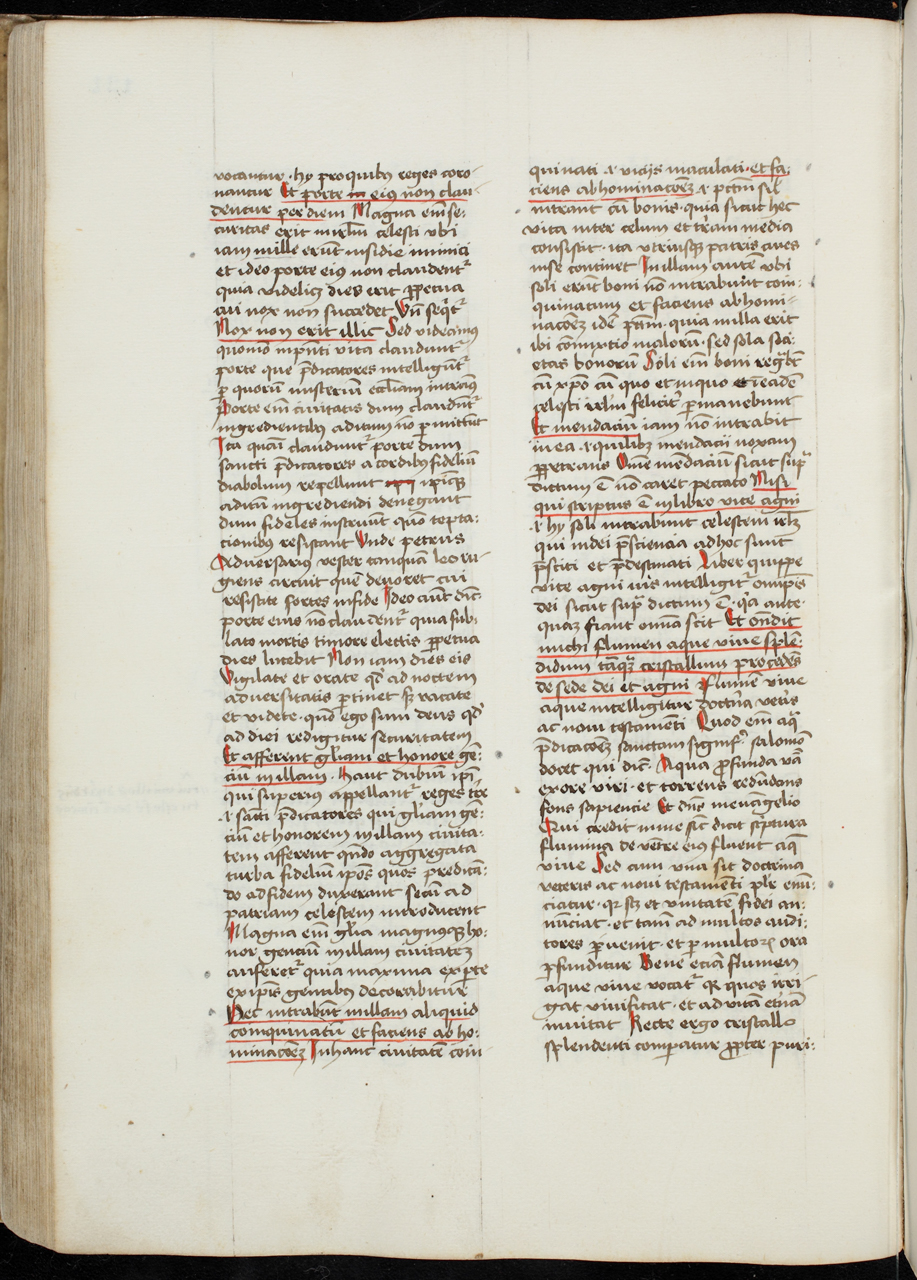 vocantur · hy pro quibus reges coro-
nantur Et porte eius non clau-
dentur per diem Magna em̄ se-
curitas erit in irl̄m celesti vbi
iam mille erūt insidie inimici
et ideo porte eius non claudentᷣ
quia videlicꝫ dies erit ꝑpetua
cui nox non succedet Vn̄ seqͥtᷣ
Nox non erit illic Sed videamus
quomō in pn̄ti vita claudūtᷣ
porte que p̄dicatores intelligūtᷣ
ꝑ quorū misteriū eccl̄iam intramꝰ
Porte em̄ ciuitatis dum claudūtᷣ
ingredientibꝰ aditum nō ꝑmittūt
Ita quasi claudūtᷣ porte dum
sancti p̄dicatores a cordibꝰ fideliū
diabolum repellunt ipīsqꝫ
aditū ingrediendi denegant
dum fideles instruūt quō tepta-
cionibꝰ resistant Vnde petrus
Aduersariꝰ vester tanquā leo ru-
giens circuit quē deuoret cui
resistite fortes in fide Ideo aūt dn̄t
porte eius nō claudentᷣ quia sub-
lato mortis timore electis ꝑpetua
dies lucebit Non iam dies eis
Vigilate et orate qd̓ ad noctem
aduersitatis ꝑtinet sꝫ vacate
et videte · qm̄ ego sum deus qd̓
ad diei redigitur securitatem
Et afferent gl̄iam et honorē gē-
ciū in illam · Haut dubiū ipi̅
qui superius appellantᷣ reges tr̄e
·i· sātti p̄dicatores qui gl̄iam gē-
ciū et honorem in illam ciuita-
tem afferent qn̄do aggregata
turba fideliū ipōs quos predicā-
do ad fidem duxerant secū ad
patriam celestem introducent
Magna em̄ gl̄ia magnusqꝫ ho-
nor genciū in illam ciuitatē
aufferetᷣ quia maxima ex parte
ex ipīs gentibꝰ decorabiturᷣ
Nec intrabūt in illam aliquid
coinquinatū et faciens abho-
minacōeꝫ In hanc ciuitatē coin
quinati ·i· vicijs maculati · et fa-
ciens abhominacōeꝫ ·i· pctm̄ sil̓
intrant cū bonis · quia sicut hec
vita inter celum et tr̄am media
consistit · ita vtriusqꝫ patris ciues
in se continet In illam autē vbi
soli erūt boni nō intrabūt coin-
quinatum et faciens abhomi-
nacōeꝫ idē pctm̄ · quia nulla erit
ibi cōmixtio malorū · sed sola soci-
etas bonorū Soli em̄ boni regn̄bt
cū xp̄o cū quo et in quo et ī eadē
celesti irl̄m felicitͬ ꝑmanebunt
Et mendaciū iam nō intrabit
in ea ·i· quilibꝫ mendacii noxam
ꝑpetrans Om̄e mēdaciū sicut supᷓ
dictum ē nō caret peccato Nisi
qui scriptus ē in libro vite agni
·i· hy soli intrabūt celestem irl̄m
qui in dei p̄sciencia ad hoc sunt
p̄sciti et p̄destinati Liber quippe
vite agni vis intelligitᷣ om̄ip̄tis
dei sicut supᷓ dictum ē · qͥa ante-
quaꝫ fiant om̄ia scit Et on̄dit
michi flumen aque viue splē-
didum tāqᷓ cristallum procedēs
de sede dei et agni Flumē viue
aque intelligitur doctͥna vetͥs
ac noui testamēti Quod em̄ aqͣ
p̄dicacōeꝫ sanctam signifᷣ salomō
docet qui dic̄ · Aqua profunda v̄ba
ex ore viri · et torrens redūdans
fons sapiencie Et dn̄s in euāngelio
Qui credit in me sic̄ dicit scͥptura
flumina de vētre eiꝰ fluent aqͣ
viue Sed cum vna sit doctrina
veteris ac noui testamēti plr̄ enū-
ciatur · qꝛ scꝫ et vnitatē fidei an-
nūciat · et tam̄ ad multos audi-
tores ꝑuenit · et ꝑ multorꝫ ora
ꝓfunditur Bene eciā flumen
aque viue vocatᷣ qꝛ quos irri-
gat viuificat · et ad vitā et̄nā
inuitat Recte ergo cristallo
splendenti comparatur ꝓpter puri-